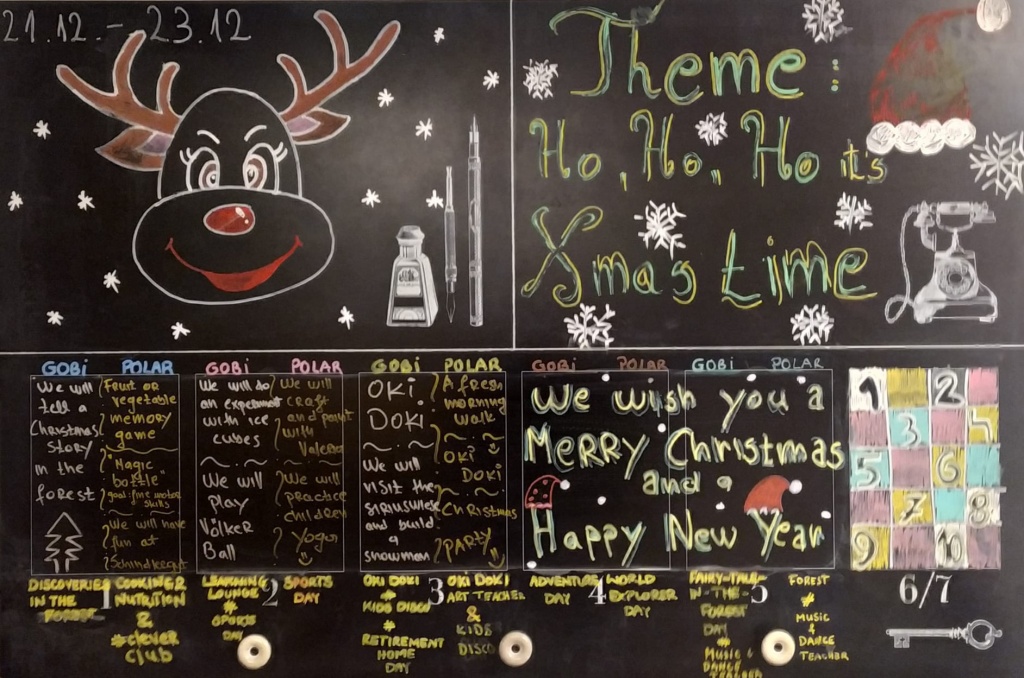 21.12. - 23.12
Theme:
Ho, Ho, Ho it's
Xmas time
GOBi POLAR
We will
tell a
Christmas
STORY
in the
forest
Fruit or
vegetable
memory
game
Magic
bottle
goal: fine motor
skills
We will have
fun at
GOBi POLAR
We will do
an experiment
with ice
cubes
We will
PLAY
Völker
Ball
We will
craft
and paint
with
Valeria
We will
practice
children
Yoga
GOBi POLAR
OKi
DOKi
We will
visit the
and build
a
snowman
A fresh
morning
walk
OKi
DOKi
Christmas
PARTY
GOBi POLAR
GOBi POLAR
We wish you a
MERRY Christmas
and a
Happy New Year
1 2
3 4
5 6
7 8
9 10
DISCOVERIES
IN THE
FOREST
1
COOKING &
NUTRITION
&
#clever
club
LEARNING
LOUNGE
#
SPORTS
DAY
2
SPORTS
DAY
OKI DOKI
#
KIDS DISCO
#
RETIREMENT
HOME
DAY
3
OKI DOKI
ART TEACHER
&
KIDS
DISCO
ADVENTURE
DAY
4
WORLD
EXPLORER
DAY
FAIRY-TALE-
IN-THE-
FOREST
DAY
#
MUSIC &
DANCE
TEACHER
5
FOREST
#
MUSIC
&
DANCE
TEACHER
6/7